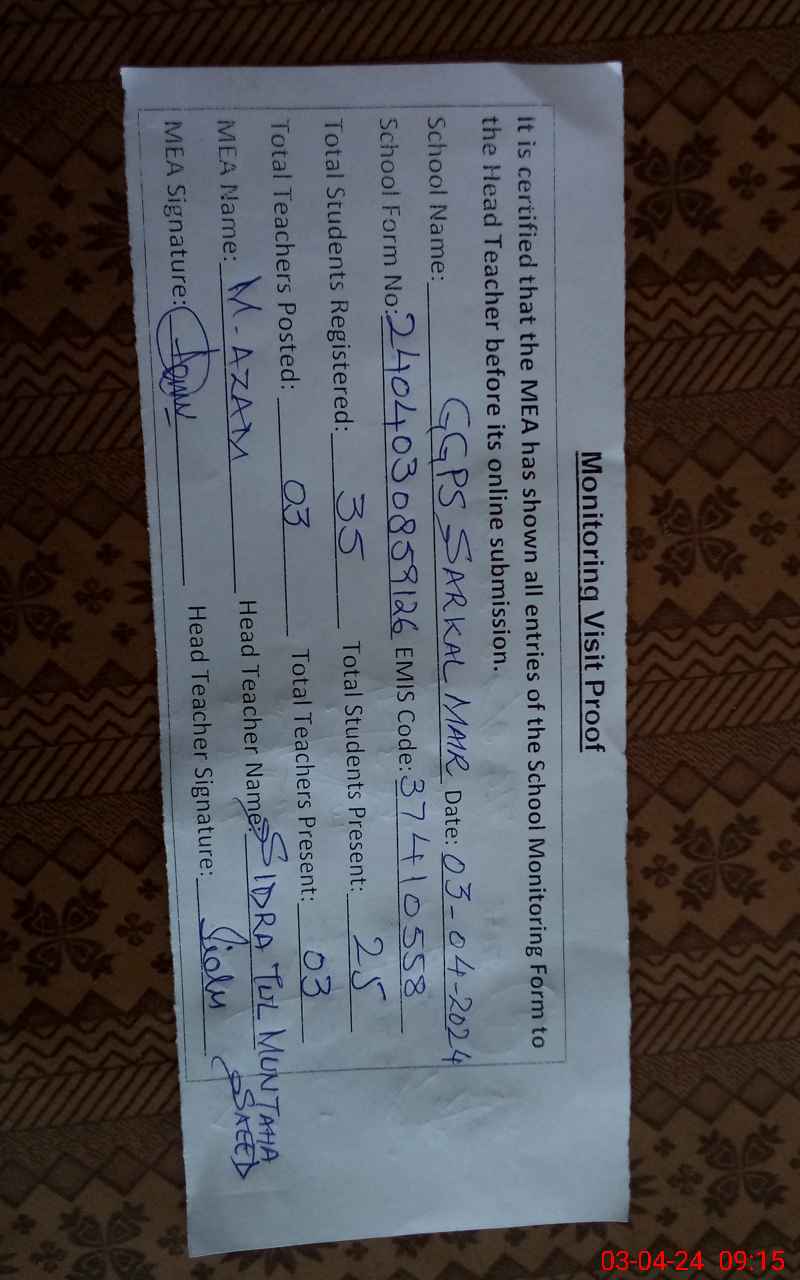 Monitoring Visit Proof
It is certified that the MEA has shown all entries of the School Monitoring Form to
the Head Teacher before its online submission.
School Name: GGPS SARKAL MAIR Date: 03-04-2024
School Form No: 2404030859126 EMIS Code: 37410558
Total Students Registered: 35 Total Students Present: 25
Total Teachers Posted: 03 Total Teachers Present: 03
MEA Name: M. AZAM Head Teacher Name: SIDRA TUL MUNTAHA
SAEED
MEA Signature: Head Teacher Signature:
03-04-24 09:15